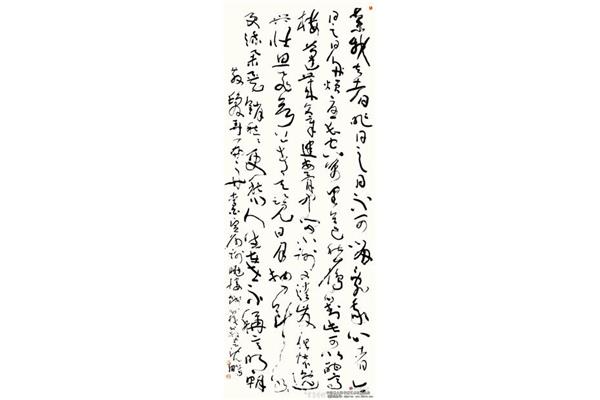 棄我去者昨日之日不可留亂我心者今
日之日多煩憂長風萬里送秋雁對此可以酣高
樓蓬萊文章建安骨中間小謝又清發俱懷逸
興壯思飛欲上青天覽日月抽刀斷水水
更流舉杯銷愁愁更愁人生在世不稱意明朝
散髮弄扁舟 宣州謝朓樓 沈鵬